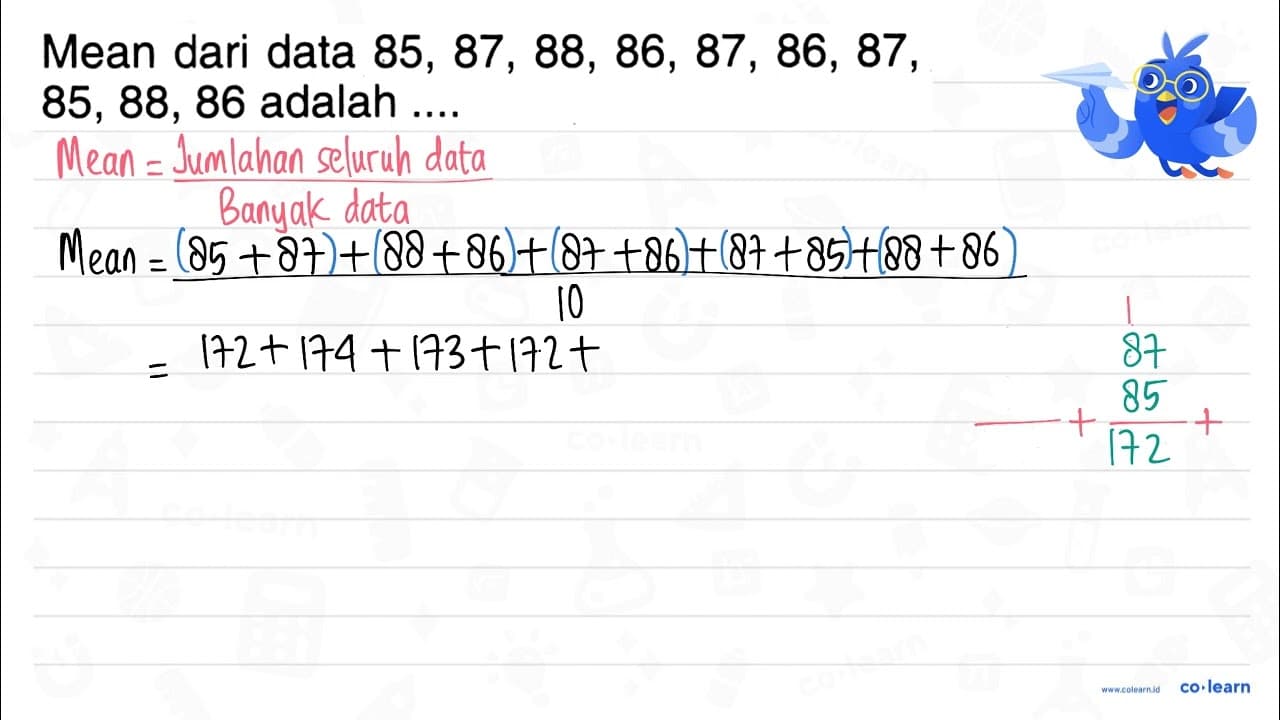 Mean dari data 85, 87, 88, 86, 87, 86, 87,
85, 88, 86 adalah ....
Mean = Jumlahan seluruh data
Banyak data
Mean = (85 + 87) + (88 + 86) + (87 + 86) + (87 + 85) + (88 + 86)
10
= 172 + 174 + 173 + 172 +
1
87
85
+ +
172
www.colearn.id co·learn